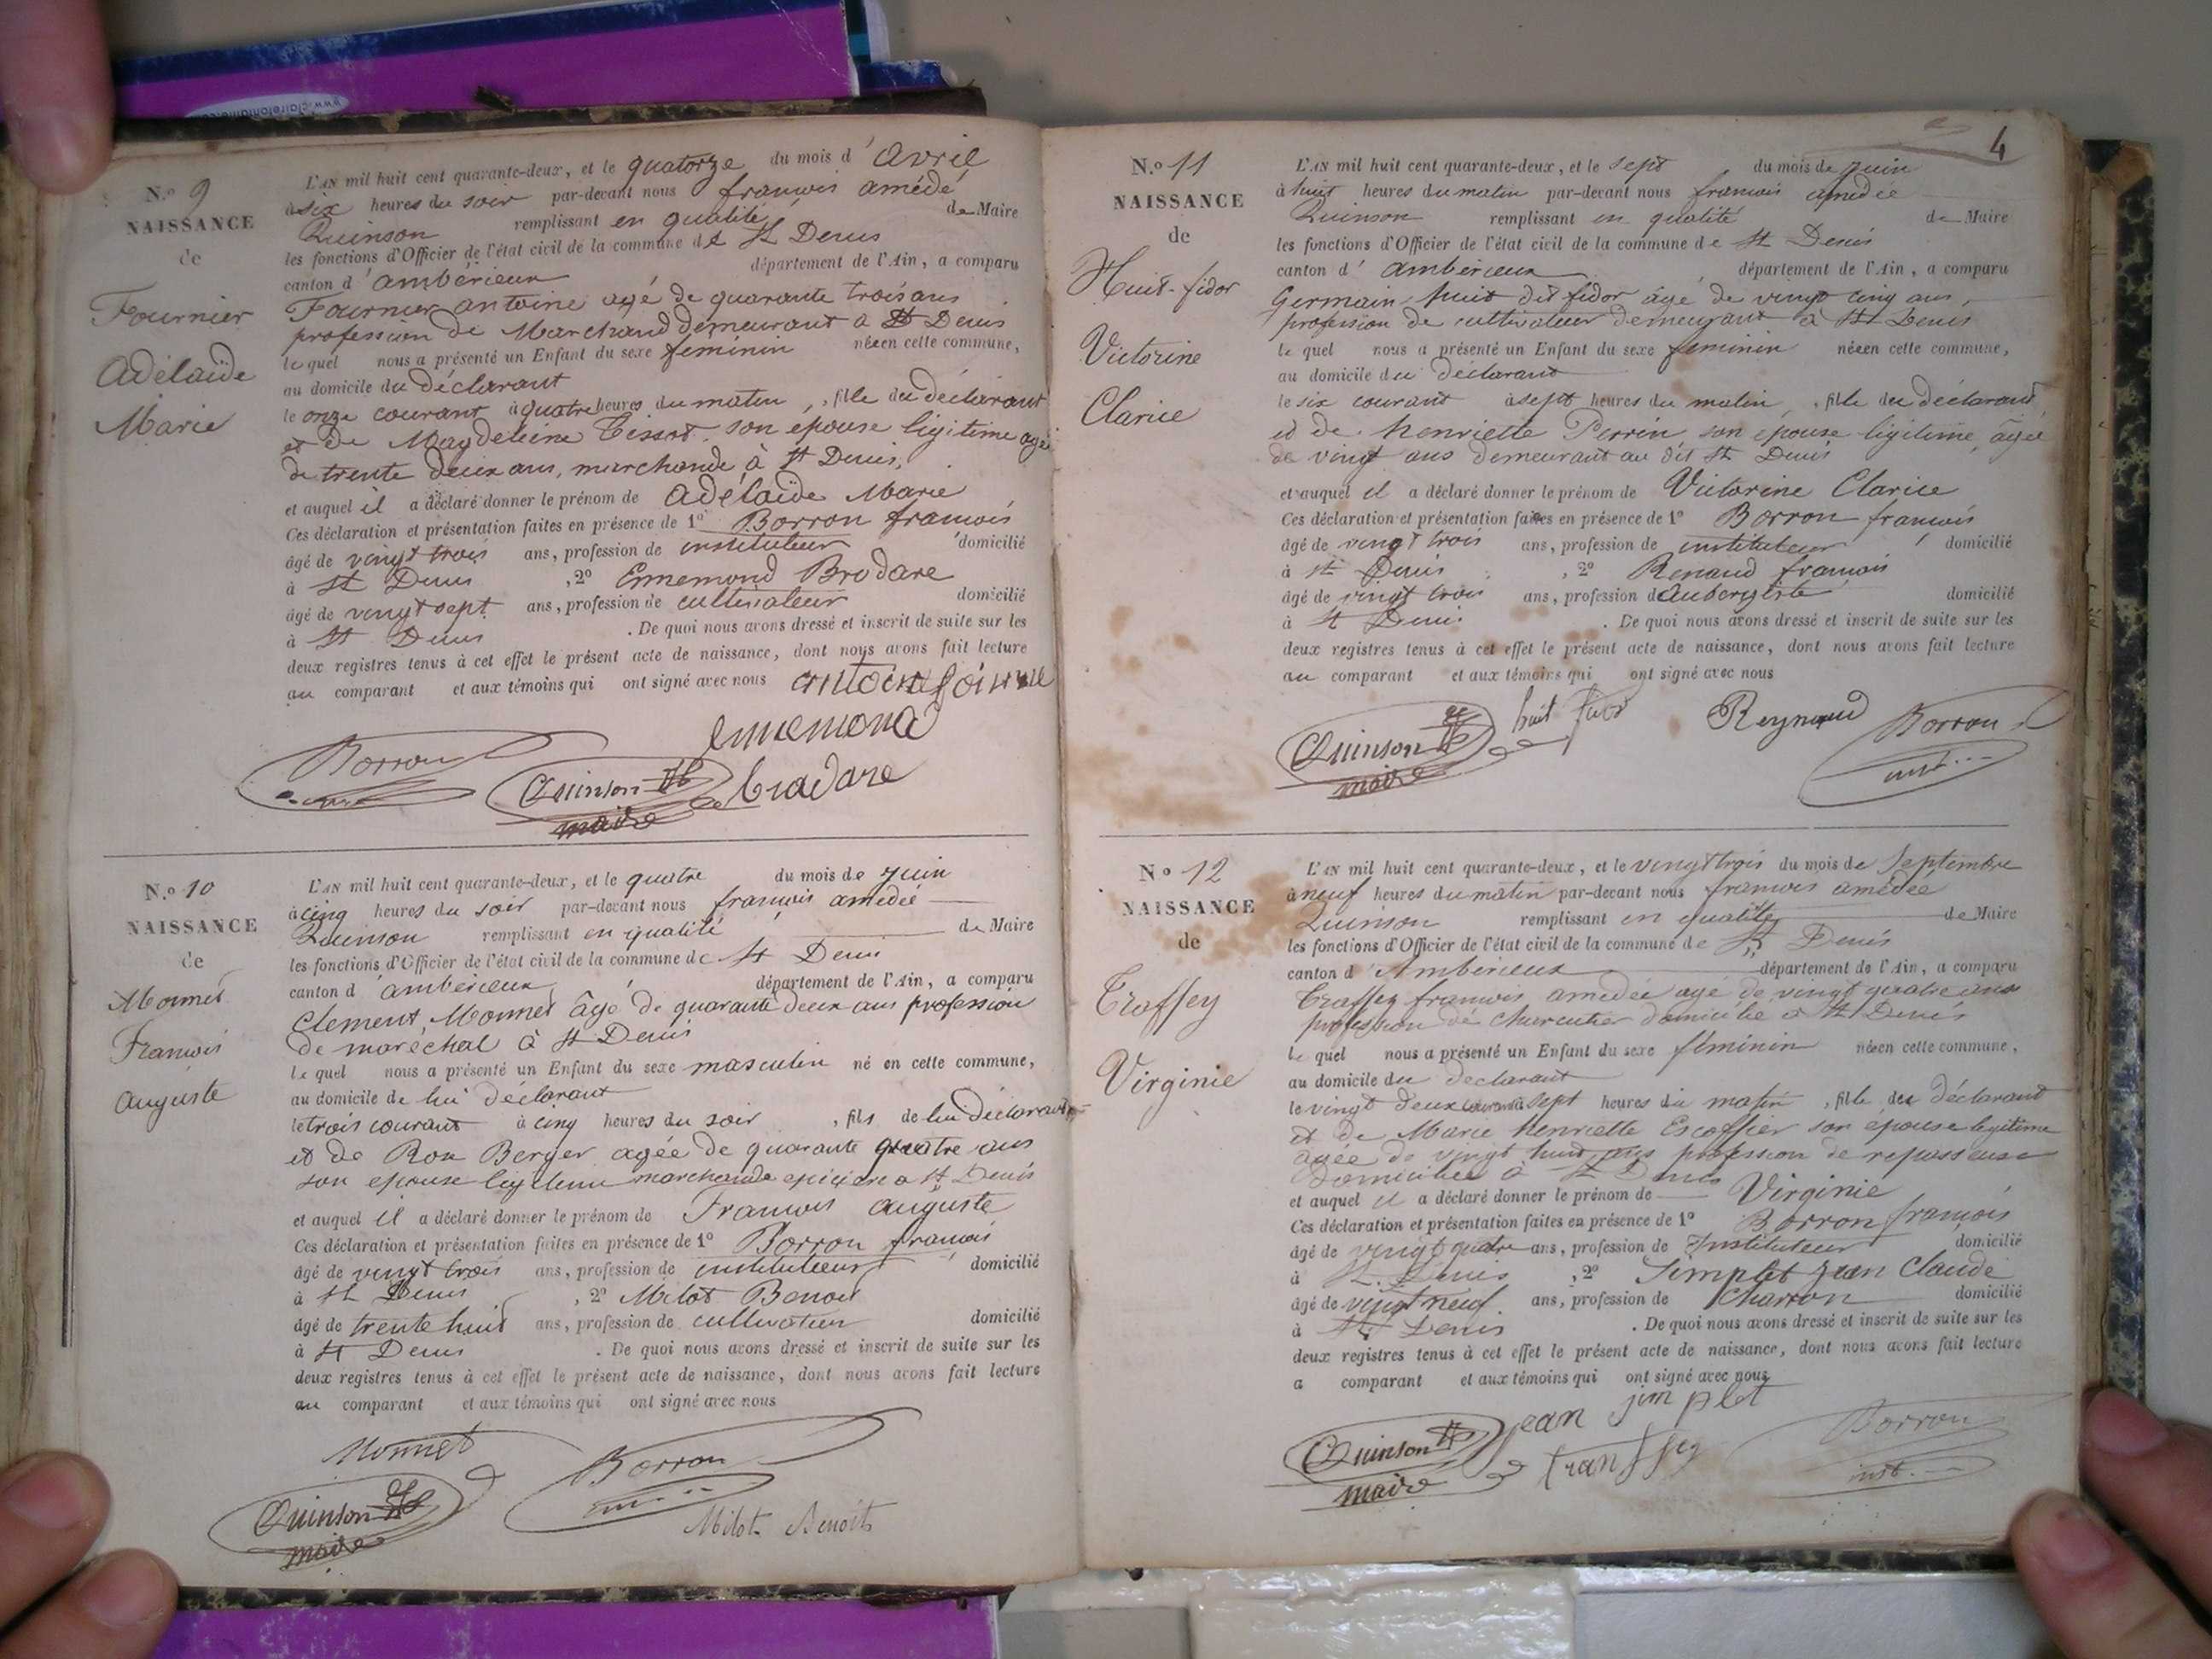 www.clairefontaine.c
N.º 9
NAISSANCE
de
Fournier
Adélaïde
Marie
L'AN mil huit cent quarante-deux, et le quatorze du mois d'Avril
à six heures du soir par-devant nous francois amédé
Quinson remplissant en qualité de Maire
les fonctions d'Officier de l'état civil de la commune de St Denis
canton d'ambérieux département de l'Ain, a comparu
Fournier antoine agé de quarante trois ans
profession de Marchand demeurant a St Denis
lequel nous a présenté un Enfant du sexe feminin née en cette commune,
au domicile du déclarant
le onze courant à quatre heures du matin, fille du déclarant
et de Magdeleine Tissot son epouse ligitime agé
de trente deux ans, marchande à St Denis,
et auquel il a déclaré donner le prénom de adélaïde Marie
Ces déclaration et présentation faites en présence de 1º Borron francois
âgé de vingt trois ans, profession de instituteur domicilié
à St Denis , 2º Ennemond Brodare
âgé de vingt sept ans, profession de cultivateur domicilié
à St Denis . De quoi nous avons dressé et inscrit de suite sur les
deux registres tenus à cet effet le présent acte de naissance, dont nous avons fait lecture
au comparant et aux témoins qui ont signé avec nous antoine
ennemond
Borron
Quinson
bradare
maire
N.º 10
NAISSANCE
de
Monnet
Francois
auguste
L'AN mil huit cent quarante-deux, et le quatre du mois de juin
à cinq heures du soir par-devant nous francois amédée
Quinson remplissant en qualité de Maire
les fonctions d'Officier de l'état civil de la commune de St Denis
canton d'ambérieux département de l'Ain, a comparu
Clement Monnet âgé de quarante deux ans profession
de maréchal à St Denis
lequel nous a présenté un Enfant du sexe masculin né en cette commune,
au domicile de lui déclarant
le trois courant à cinq heures du soir , fils de lui déclarant
et de Berger agée de quarante quatre ans
son epouse ligitime marchande epiciere a St Denis
et auquel il a déclaré donner le prénom de Francois auguste
Ces déclaration et présentation faites en présence de 1º Borron francois
âgé de vingt trois ans, profession de instituteur domicilié
à St Denis , 2º Milot Benoit
âgé de trente huit ans, profession de cultivateur domicilié
à St Denis . De quoi nous avons dressé et inscrit de suite sur les
deux registres tenus à cet effet le présent acte de naissance, dont nous avons fait lecture
au comparant et aux témoins qui ont signé avec nous
Monnet
Borron
Quinson
maire
Milot Benoit
4
N.º 11
NAISSANCE
de
Huit-fidor
Victorine
Clarice
L'AN mil huit cent quarante-deux, et le sept du mois de juin
à huit heures du matin par-devant nous francois amedée
Quinson remplissant en qualité de Maire
les fonctions d'Officier de l'état civil de la commune de St Denis
canton d'ambérieux département de l'Ain, a comparu
Germain huit dit fidor âgé de vingt cinq ans,
profession de cultivateur demeurant à St Denis
lequel nous a présenté un Enfant du sexe feminin née en cette commune,
au domicile du déclarant
le six courant à sept heures du matin, fille du déclarant
et de henriette Perrin, son epouse ligitime, âgée
de vingt ans demeurant au dit St Denis
et auquel il a déclaré donner le prénom de Victorine Clarice
Ces déclaration et présentation faites en présence de 1º Borron francois
âgé de vingt trois ans, profession de instituteur domicilié
à St Denis , 2º Renaud francois
âgé de vingt trois ans, profession d'aubergiste domicilié
à St Denis . De quoi nous avons dressé et inscrit de suite sur les
deux registres tenus à cet effet le présent acte de naissance, dont nous avons fait lecture
au comparant et aux témoins qui ont signé avec nous
huit
Reynaud
Borron
Quinson
maire
inst
Nº 12
NAISSANCE
de
Traffey
Virginie
L'AN mil huit cent quarante-deux, et le vingt trois du mois de Septembre
à neuf heures du matin par-devant nous francois amédée
Quinson remplissant en qualité de Maire
les fonctions d'Officier de l'état civil de la commune de St Denis
canton d'Ambérieux département de l'Ain, a comparu
Traffey francois amedée agé de vingt quatre ans
profession de charcutier domicilié à St Denis
lequel nous a présenté un Enfant du sexe féminin née en cette commune,
au domicile du declarant
le vingt deux courant à sept heures du matin, fille du déclarant
et de Marie henriette Escoffier son épouse legitime
agée de vingt huit ans profession de repasseuse
Domiciliée à St Denis
et auquel il a déclaré donner le prénom de Virginie
Ces déclaration et présentation faites en présence de 1º Borron francois
âgé de vingt quatre ans, profession de Instituteur domicilié
à St. Denis , 2º Simplet jean Claude
âgé de vingt neuf ans, profession de Charron domicilié
à St Denis . De quoi nous avons dressé et inscrit de suite sur les
deux registres tenus à cet effet le présent acte de naissance, dont nous avons fait lecture
a comparant et aux témoins qui ont signé avec nous
jean simplet
Quinson
Borron
maire
inst.